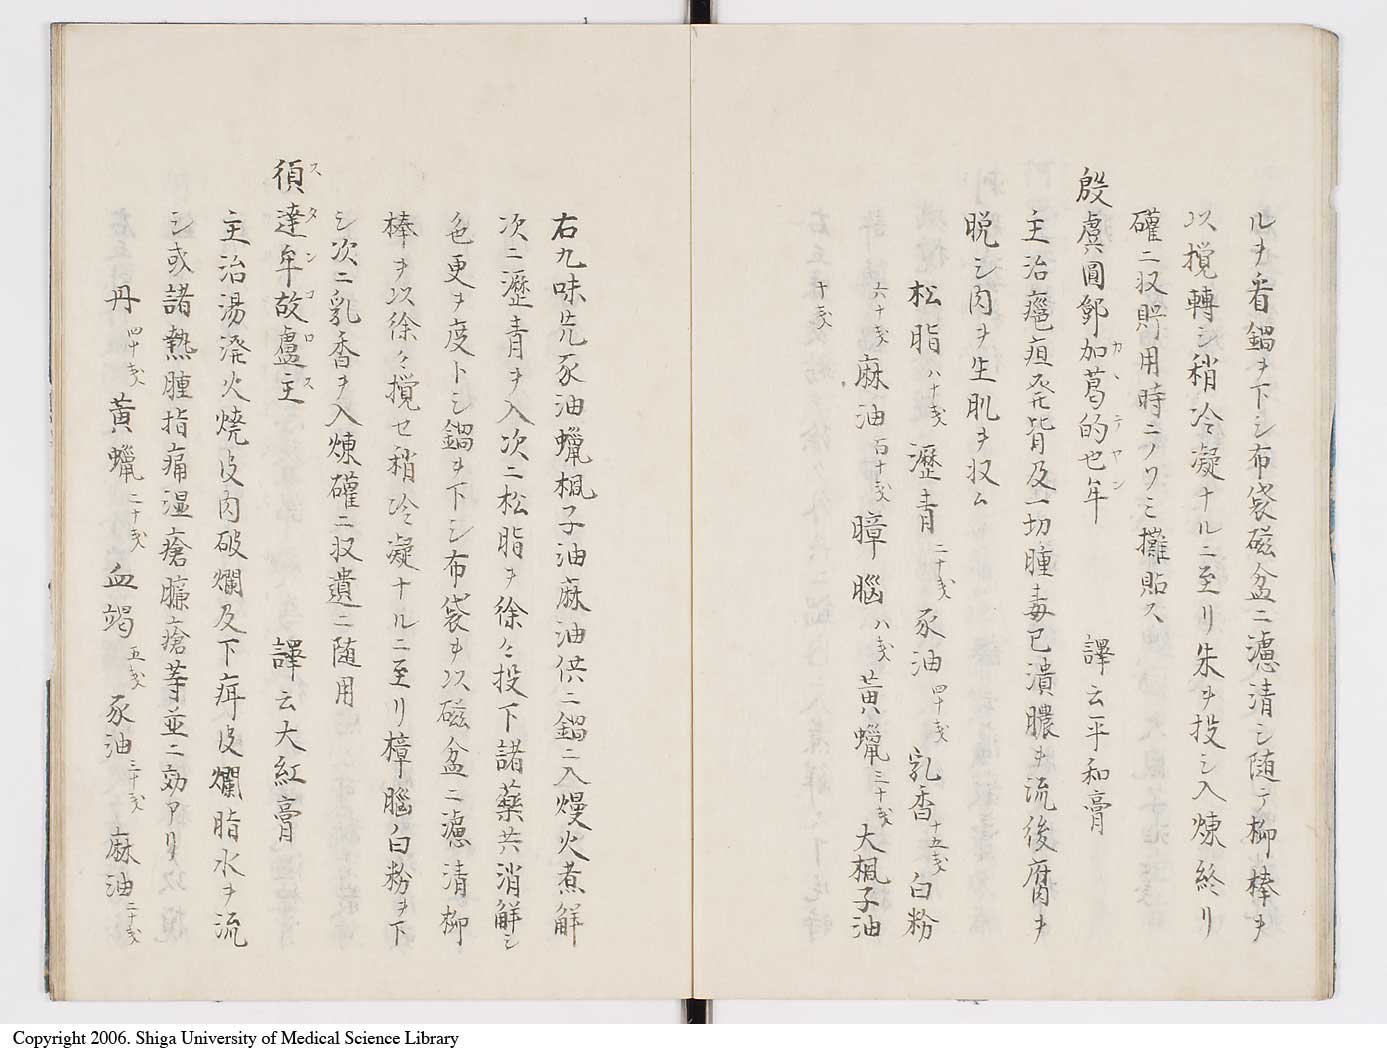 ルヲ看鍋ヲ下シ布袋磁盆ニ濾清シ随テ柳棒ヲ
以攪轉シ稍冷凝ナルニ至リ朱ヲ投シ入煉終リ
礶ニ収貯用時ニノリミ攤貼ス
殷虞圓鄧加葛的也牟 譯云平和膏
カヽテヤン
主治癰疽発背及一切腫毒已潰膿ヲ流後腐肉ヲ
晩シ肉ヲ生肌ヲ収ム
松脂八十戔 瀝青二十戔 豕油四十戔 乳香十五戔 白粉
六十戔 麻油百十戔 暲腦八戔 黄蠟三十戔 大楓子油
十戔
右九味先豕油蠟楓子油麻油供ニ鍋ニ入熳火煮觧
次ニ瀝青ヲ入次ニ松脂ヲ徐々投下諸薬共消觧シ
色更ヲ度トシ鍋ヲ下シ布袋ヲ以磁盆ニ濾清柳
棒ヲ以徐々攪セ稍冷凝ナルニ至リ樟腦白粉ヲ下
シ次ニ乳香ヲ入煉礶ニ収遺ニ随用
須達牟故盧主 譯云大紅膏
スタンコロス
主治湯溌火焼皮肉破爛及下疳皮爛脂水ヲ流
シ或諸熱腫指痛湿瘡臁瘡等並ニ効アリ
丹四十戔 黄蠟二十戔 血竭五戔 豕油三十戔 麻油二十戔
Copyright 2006. Shiga University of Medical Science Library